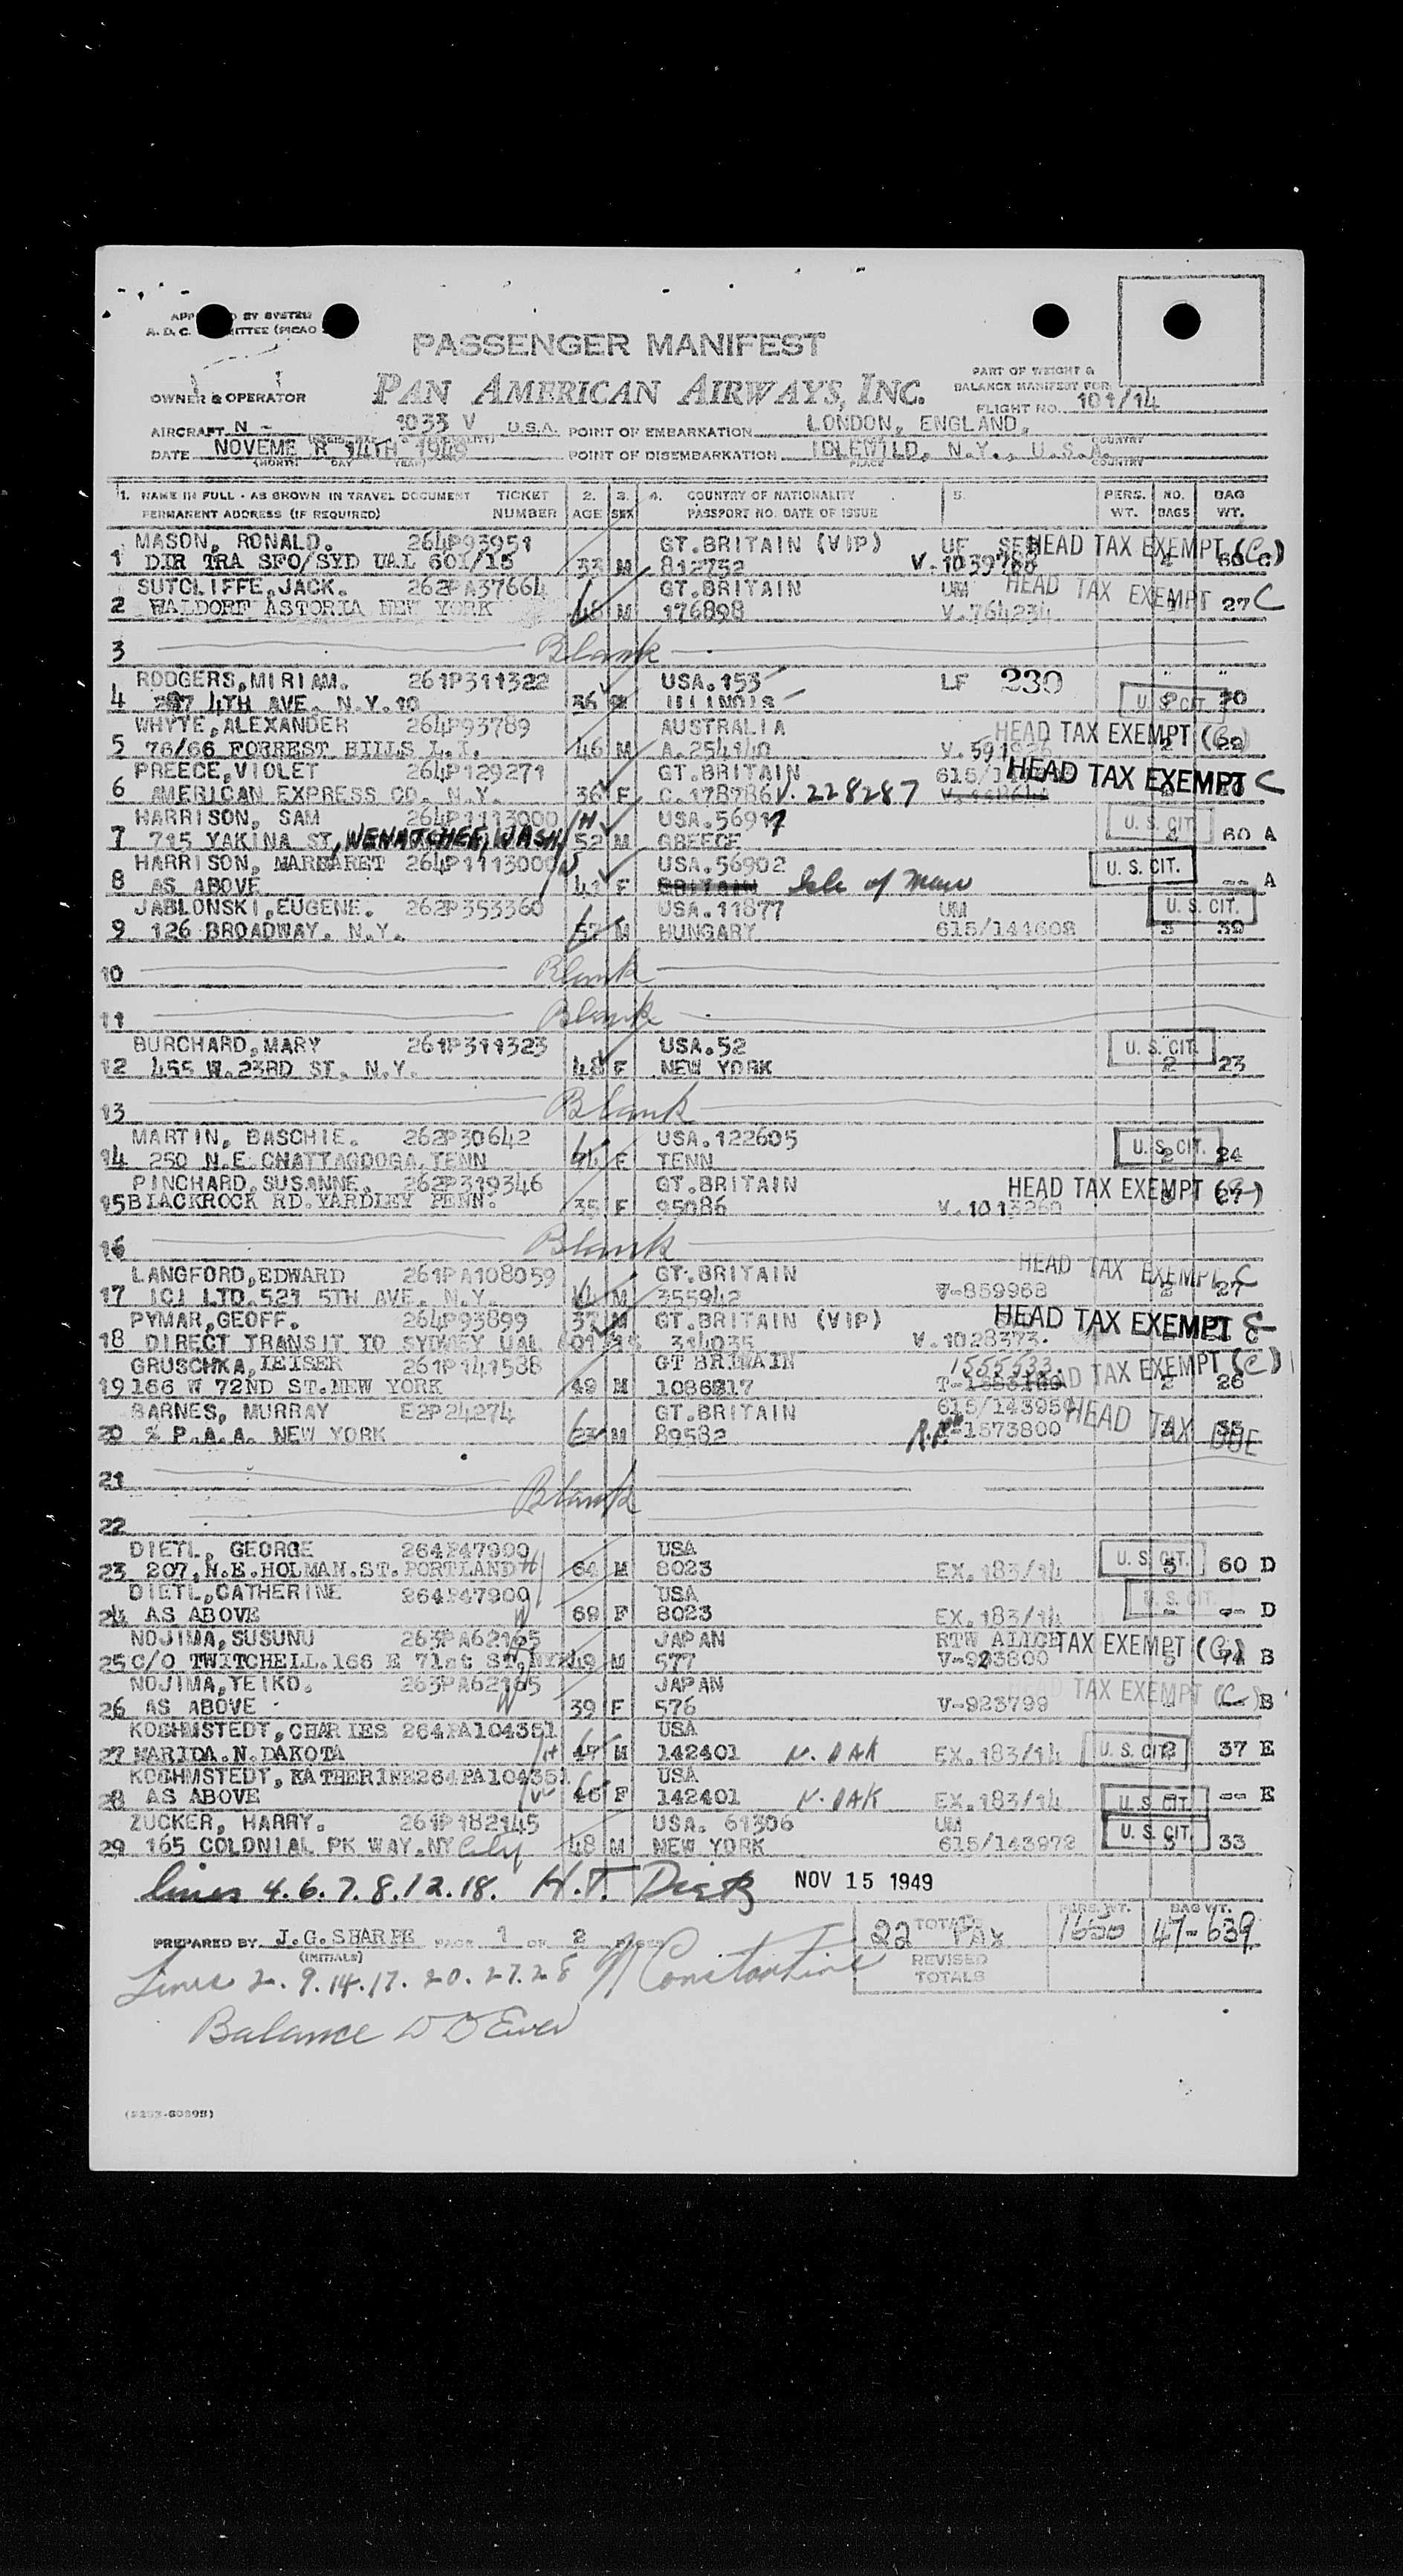 PASSENGER MANIFEST
PAN AMERICAN AIRWAYS, INC.
PART OF WEIGHT &
BALANCE MANIFEST FOR
FLIGHT NO. 101/14
OWNER & OPERATOR
AIRCRAFT N - 1033 V U.S.A. POINT OF EMBARKATION LONDON, ENGLAND,
DATE NOVEMB R 14TH 1949 POINT OF DISEMBARKATION IDLEWILD, N.Y., U.S.A.
(MONTH) DAY YEAR) PLACE COUNTRY
1. NAME IN FULL - AS SHOWN IN TRAVEL DOCUMENT TICKET 2. 3. 4. COUNTRY OF NATIONALITY 5. PERS. NO. BAG
PERMANENT ADDRESS (IF REQUIRED) NUMBER AGE SEX PASSPORT NO. DATE OF ISSUE WT. BAGS WT.
MASON, RONALD. 264P93951 GT.BRITAIN (VIP) HEAD TAX EXEMPT (C)
1 DIR TRA SFO/SYD UAL 601/15 33 M 812752
SUTCLIFFE,JACK. 262PA37664 GT.BRITAIN UM HEAD TAX EXEMPT C
2 WALDORF ASTORIA NEW YORK 48 M 176898 V.764234 27
3 Blank
RODGERS,MIRIAM. 261P311322 USA.153 LF 230
4 4TH AVE. N.Y.10 36 ILLINOIS U.S.CIT. 20
WHYTE,ALEXANDER 264P93789 AUSTRALIA HEAD TAX EXEMPT (C)
5 76/66 FORREST HILLS L.I. 46 M A.254140
PREECE,VIOLET 264P129271 GT.BRITAIN HEAD TAX EXEMPT C
6 AMERICAN EXPRESS CO. N.Y. 36 F C.178786 V.228287
HARRISON, SAM 264P1113000 H USA.56917 U.S.CIT
7 715 YAKINA ST, WENATCHEE, WASH 52 M GREECE 60 A
HARRISON, MARGARET 264P1113000 W USA.56902 U.S.CIT.
8 AS ABOVE 41 F Isle of Man -- A
JABLONSKI,EUGENE. 262P353360 USA.11877 UM U.S.CIT.
9 126 BROADWAY. N.Y. 57 M HUNGARY 615/141608 3 39
10 Blank
11 Blank
BURCHARD,MARY 261P311323 USA.52 U.S.CIT.
12 455 W.23RD ST. N.Y. 48 F NEW YORK 2 23
13 Blank
MARTIN, BASCHIE. 262P30642 USA.122605 U.S.CIT.
14 250 N.E CHATTAGOOGA,TENN F TENN 2 24
PINCHARD,SUSANNE. 262P319346 GT.BRITAIN HEAD TAX EXEMPT
15 BLACKROCK RD.YARDLEY PENN. 35 F 95086 V.1013260
16 Blank
LANGFORD,EDWARD 261PA108059 GT.BRITAIN HEAD TAX EXEMPT C
17 ICI LTD.521 5TH AVE. N.Y. M 355942 V-859968 2 27
PYMAR,GEOFF. 264P93899 37 M GT.BRITAIN (VIP) HEAD TAX EXEMPT C
18 DIRECT TRANSIT TO SYDNEY UAL 601/15 314035 V.1028373.
GRUSCHKA,LEISER 261P141588 GT BRITAIN 1555533. HEAD TAX EXEMPT (C)
19 166 W 72ND ST.NEW YORK 49 M 1086817 2 26
BARNES, MURRAY E2P24274 GT.BRITAIN 615/143959 HEAD TAX DUE
20 % P.A.A. NEW YORK 23 M 89582 1573800
21 Blank
22
DIETL, GEORGE 264P47900 USA U.S.CIT.
23 207,N.E.HOLMAN.ST.PORTLAND H 64 M 8023 EX.183/14 5 60 D
DIETL,CATHERINE 264P47900 USA U.S.CIT.
24 AS ABOVE W 69 F 8023 EX.183/14 -- D
NOJIMA,SUSUNU 263PA62165 JAPAN TAX EXEMPT (C)
25 C/O TWITCHELL.166 E 71st ST, 49 M 577 V-923800 B
NOJIMA,YEIKO. 263PA62165 JAPAN HEAD TAX EXEMPT (C)
26 AS ABOVE W 39 F 576 V-923799 B
KOEHMSTEDT,CHARLES 264PA104351 USA
27 MARIDA.N.DAKOTA H 47 M 142401 N. DAK EX.183/14 U.S.CIT. 37 E
KOEHMSTEDT,KATHERINE264PA104351 USA
28 AS ABOVE W 46 F 142401 N. DAK EX.183/14 U.S.CIT. -- E
ZUCKER, HARRY. 261P182145 USA. 61306 UM U.S.CIT.
29 165 COLONIAL PK WAY.NY City 48 M NEW YORK 615/143972 3 33
lines 4.6.7.8.12.18. H.T. NOV 15 1949
PREPARED BY J.G.SHARPE PAGE 1 OF 2 PAGES 22 TOTALS PAX PERS. WT. 1650 BAG WT. 47-639
(INITIALS) REVISED TOTALS
Lines 2.9.14.17.20.27.28 Constantine
Balance